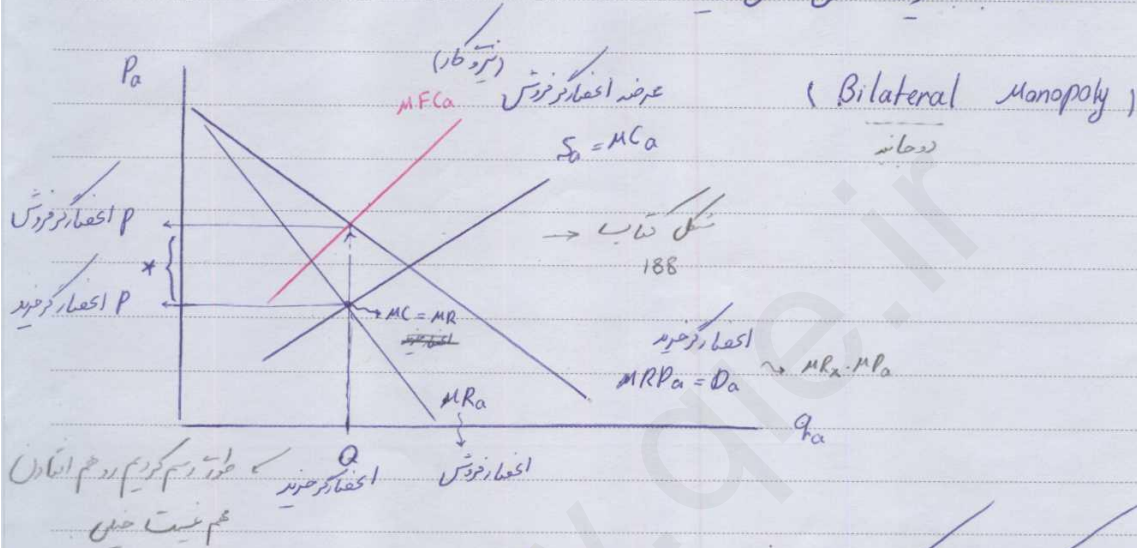 Pa
(نیروی کار)
MFCa
عرضه انحصارگر فروش
Sa = MCa
( Bilateral Monopoly )
دوجانبه
P انحصارگر فروش
*
P انحصارگر خرید
شکل کتاب →
188
MC = MR
انحصارگر خرید
MRPa = Da
MRx . MPa
MRa
qa
Q
انحصارگر خرید
انحصار فروش
رسم کردیم رو هم افتادن
مهم نیست خیلی
www.qie.ir